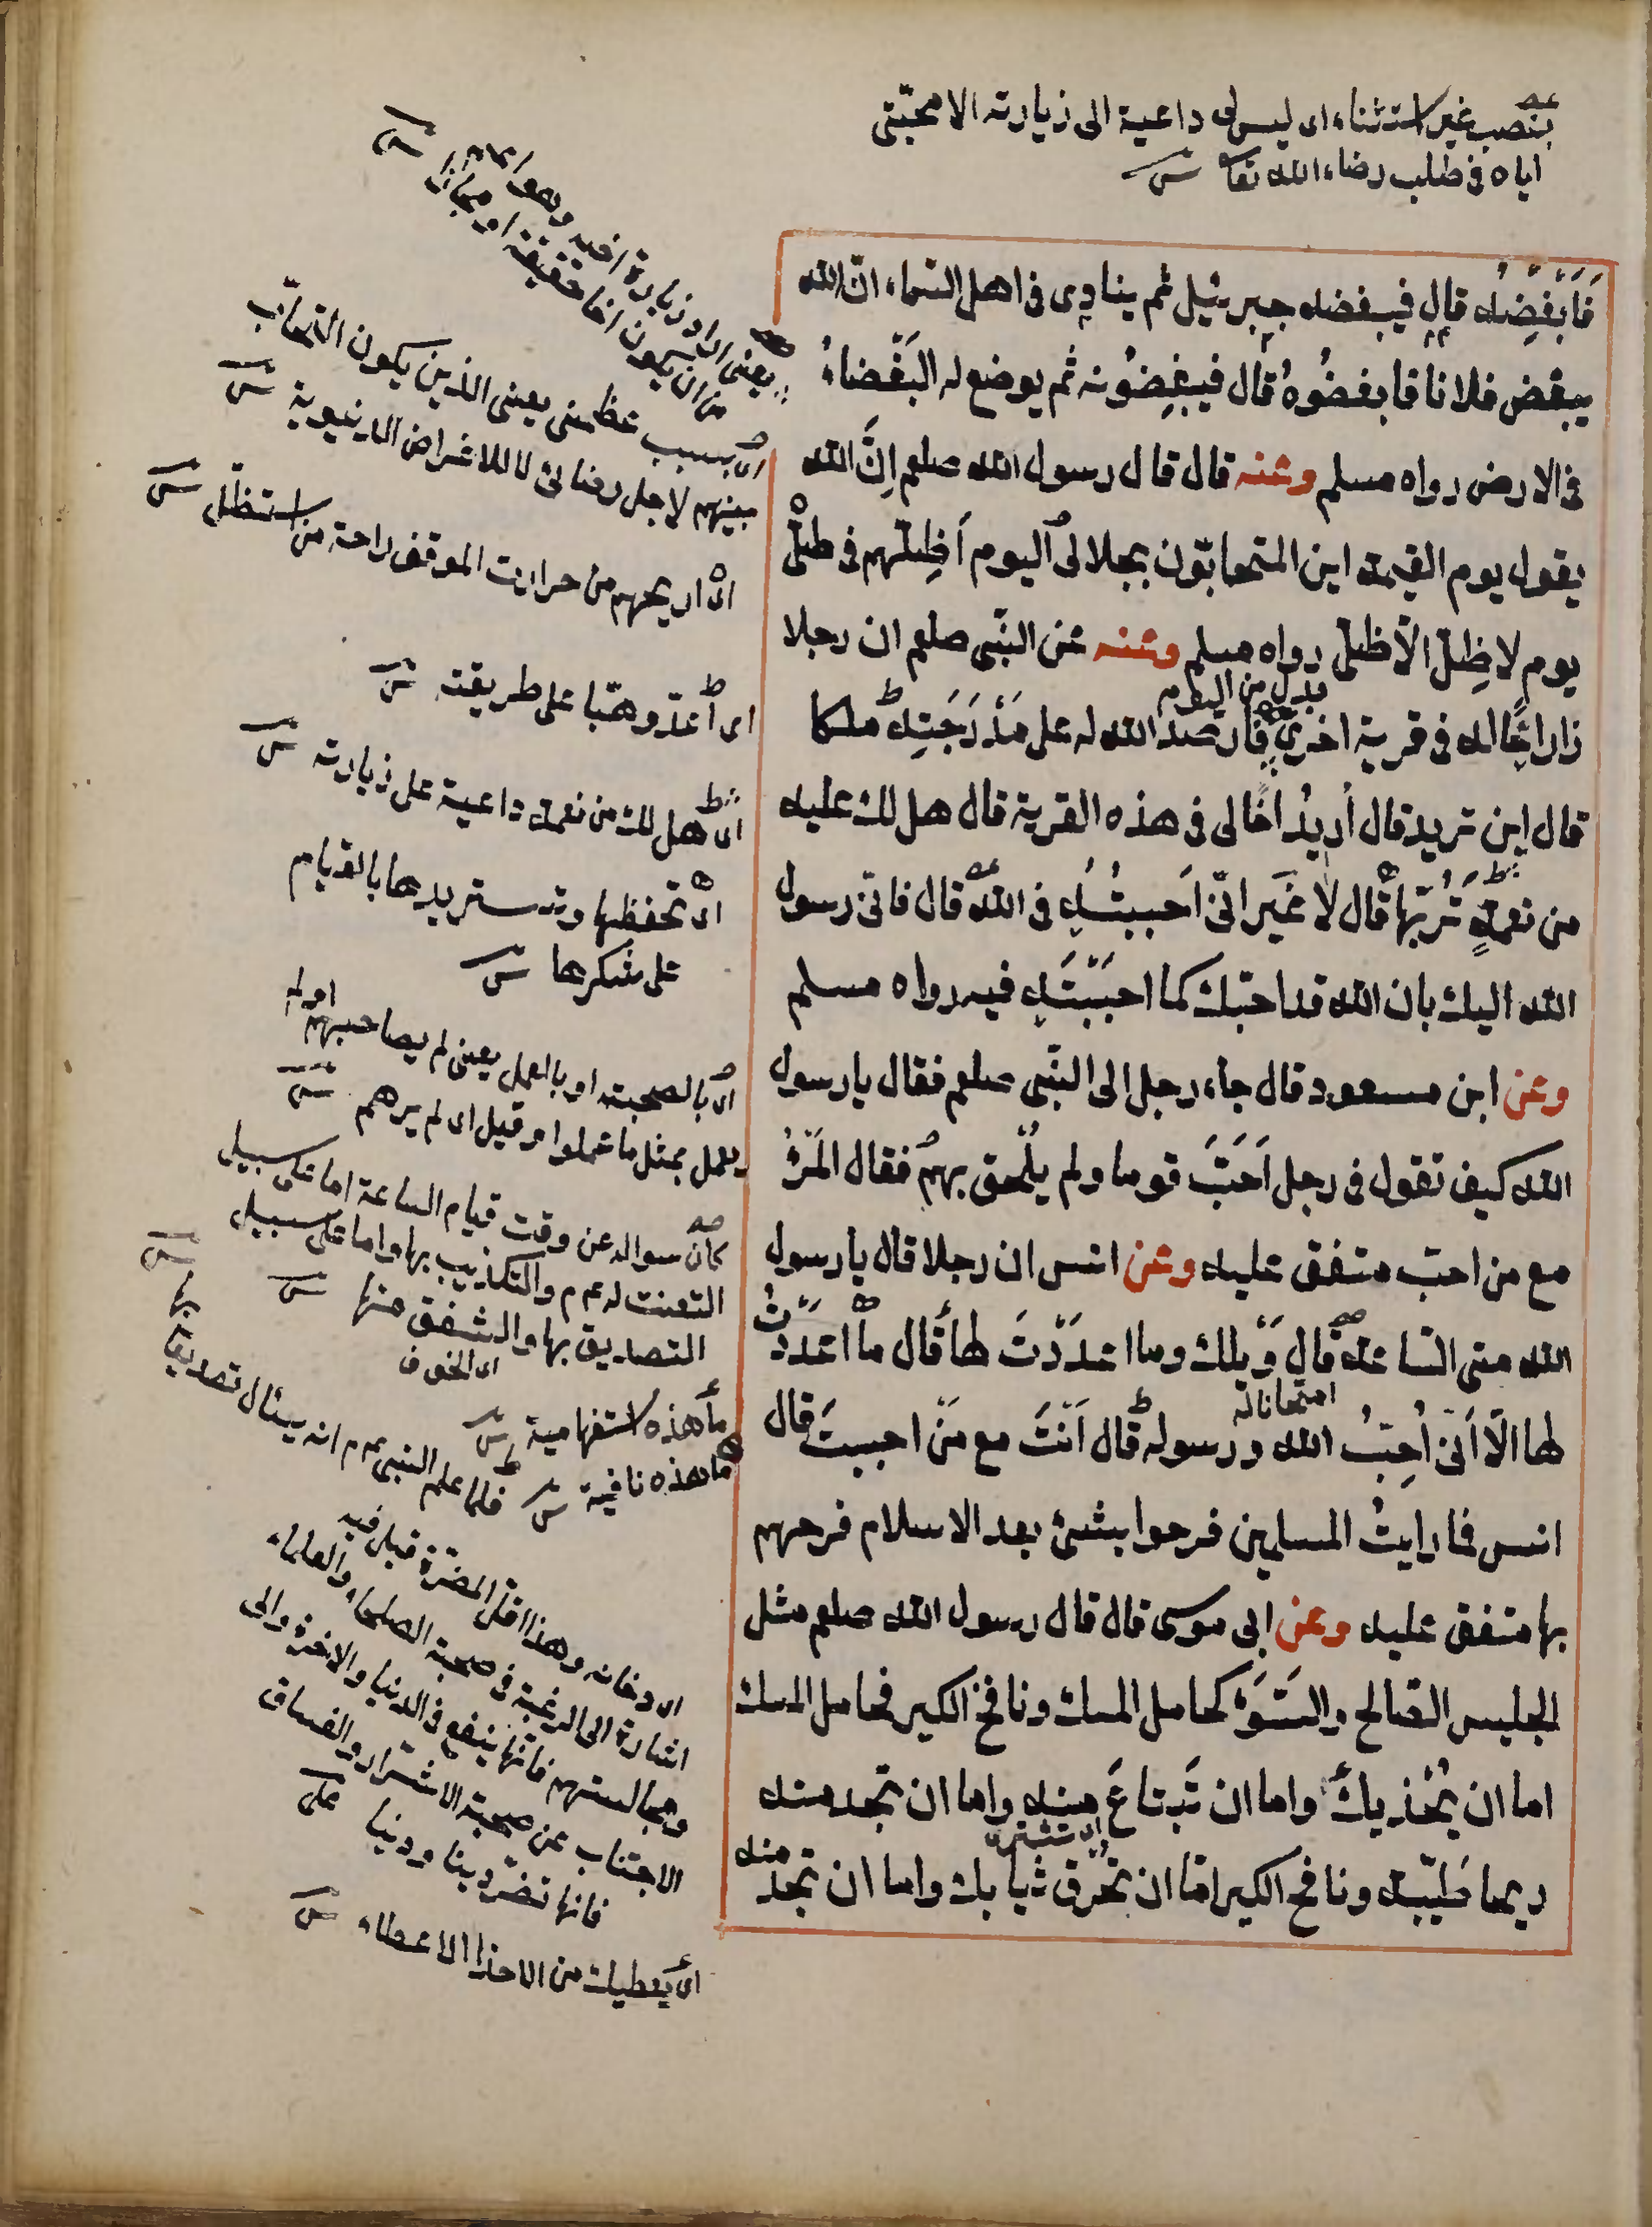 بنصب غير استثناء اى ليس لى داعية الى زيارته الا محبّتى
اياه فى طلب رضاء الله تعا ش
فَاَبْغِضْهُ قال فيبغضه جبرئيل ثم ينادى فى اهل السّماء انّ الله
يبغض فلانا فابغضُوهُ قال فيبغِضُونه ثم يوضع له البَغْضاءُ
فى الارض رواه مسلم وعنه قال قال رسول الله صلعم اِنَّ الله
يقول يوم القيمة اين المتحابّون بجلالى اليوم اُظِلّهم فى ظلّى
يوم لا ظِلّ الّا ظلّى رواه مسلم وعنه عن النّبى صلعم ان رجلا
بدل من اليوم
زار اخًا له فى قرية اخرى فارصد الله له على مَدْرَجَتِه ملكا
قال اين تريد قال اُريدُ اخًا لى فى هذه القرية قال هل لك عليه
من نعمةٍ تَرُبّها قال لا غَيرَ انّى اَحببتُه فى الله قال فانّى رسول
الله اليك بان الله قد احبّك كما احبَبْتَه فيه رواه مسلم
وعن ابن مسعود قال جاء رجل الى النّبى صلعم فقال يا رسول
الله كيف تقول فى رجل اَحَبَّ قوما ولم يَلْحق بهم فقال المَرْءُ
مع من احبّ متفق عليه وعن انس ان رجلا قال يا رسول
الله متى السّاعة قال وَيْلك وما اعدَدْتَ لها قال ما اعدَدْتُ
امتحانا له
لها الّا اَنّى اُحِبُّ الله ورسوله قال اَنْتَ مع مَنْ احببتَ قال
انس فما رايتُ المسلمين فرحوا بشئ بعد الاسلام فرحهم
بها متفق عليه وعن ابى موسى قال قال رسول الله صلعم مثل
الجليس الصّالح والسَّوْء كحامل المسك ونافخ الكير فحامل المسك
اما ان يُحْذِيك واما ان تَبتاعَ منه واما ان تجد منه
اى تشترى
ريحا طَيّبة ونافخ الكير امّا ان يُحْرق ثيابك واما ان تجد منه
يعنى اراد زيارة اخيه وهو اعم
من ان يكون اخا حقيقة او مجازا ش
اى بسبب عظمتى يعنى الذين يكون التحابّ
بينهم لاجل رضائى لا للاغراض الدنيوية ش
اى اريحهم من حرارت الموقف راحة من استظلّ ش
اى اعدّ وهيّا على طريقته ش
اى هل لك من نعمة داعية على زيارته ش
اى تحفظها وتستزيدها بالقيام
على شكرها ش
اى بالصحبة او بالعمل يعنى لم يصاحبهم او لم
يعمل بمثل ما عملوا وقيل اى لم يرهم ش
كانّ سواله عن وقت قيام الساعة اما على سبيل
التعنت له عم والتكذيب بها واما على سبيل
التصديق بها والشفق منها ش
اى الخوف
ما هذه استفهامية ش
ما هذه نافية ش فلما علم النبى عم انه يسئال تصديق بها ش
اى دخانه وهذا اقل المضرة قيل فيه
اشارة الى الرغبة فى صحبة الصلحاء والعلماء
ومجالستهم فانّها ينفع فى الدنيا والاخرة والى
الاجتناب عن صحبة الاشرار والفساق
فانها تضر دينا ودنيا على
اى يعطيك من الاحذا الاعطاء ش